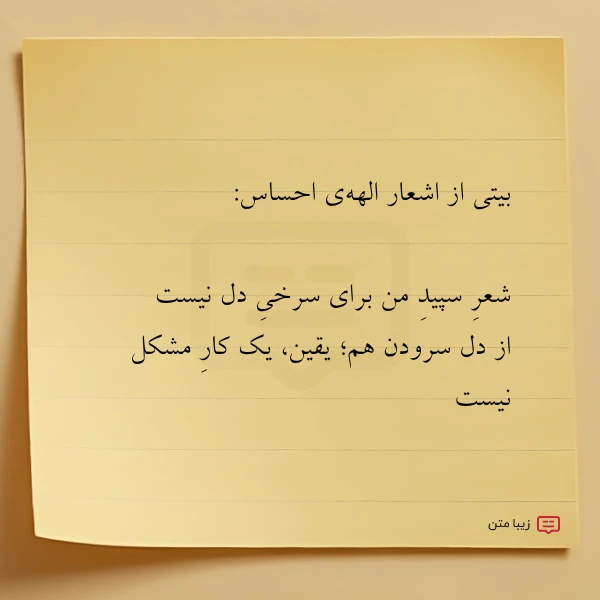 بیتی از اشعار الهه‌ی احساس:
شعرِ سپیدِ من برای سرخیِ دل نیست
از دل سرودن هم؛ یقین، یک کارِ مشکل
نیست
زیبا متن